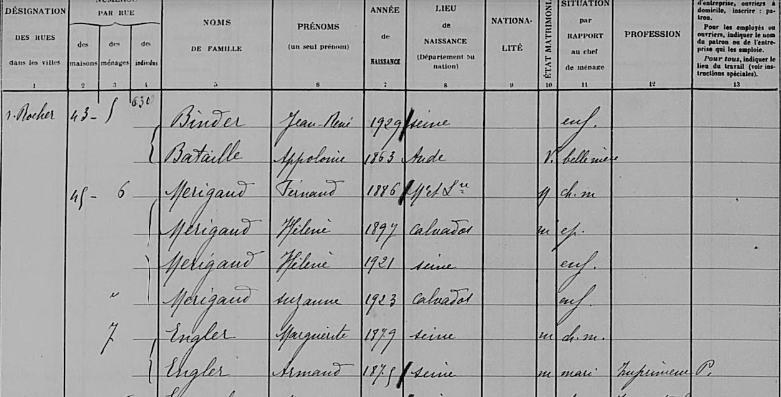 DÉSIGNATION DES RUES dans les villes NUMÉROS PAR RUE des maisons des ménages des individus NOMS DE FAMILLE PRÉNOMS (un seul prénom) ANNÉE de NAISSANCE LIEU de NAISSANCE (Département ou nation) NATIONALITÉ ÉTAT MATRIMONIAL SITUATION par RAPPORT au chef de ménage PROFESSION d'entreprise, ouvriers à domicile, inscrire : patron. Pour les employés ou ouvriers, indiquer le nom du patron ou de l'entreprise qui les emploie. Pour tous, indiquer le lieu du travail (voir instructions spéciales).
1 2 3 4 5 6 7 8 9 10 11 12 13
r. Rocher 43 - 5 Binder Jean-René 1929 seine enf.
Bataille Appolonie 1863 Aude V. belle mère
45 - 6 Merigaud Fernand 1886 Mne et Lre M ch. m
Merigaud Hélène 1897 calvados m ep.
Merigaud Hélène 1921 seine enf.
" Merigaud suzanne 1923 calvados enf.
7 Engler Marguerite 1879 seine m ch. m.
Engler Armand 1875 seine m mari Imprimeur P.